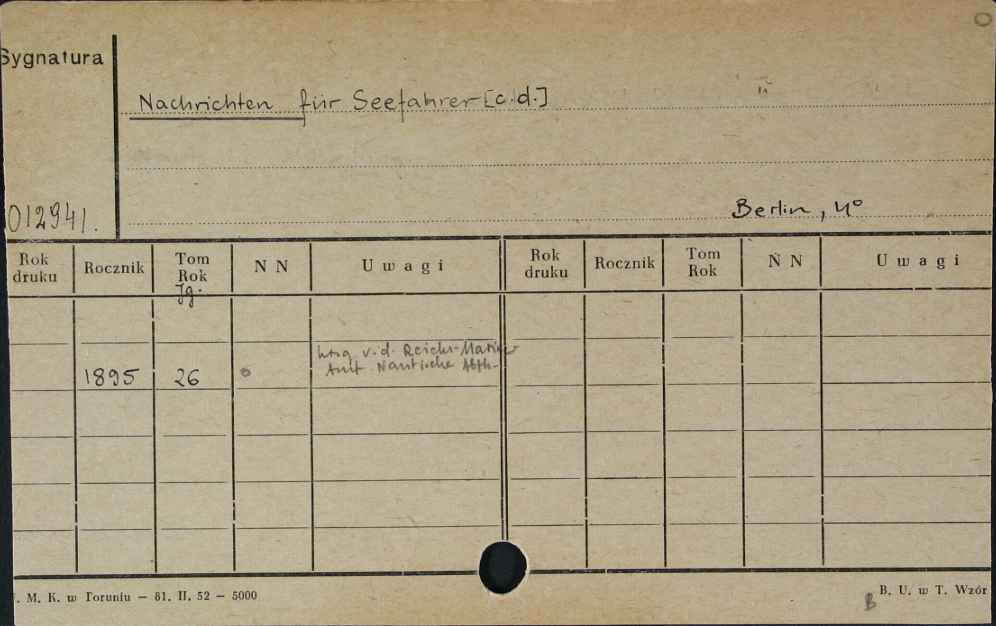 Sygnatura
Nachrichten für Seefahrer [c.d.]
012941.
Berlin, 4°
Rok druku Rocznik Tom Rok N N Uwagi Rok druku Rocznik Tom Rok N N Uwagi
Jg.
hrsg v.d. Reichs-Marine
1895 26 Amt Nautische Abth.
. M. K. w Toruniu — 81. II. 52 — 5000
B. U. w T. Wzór
B